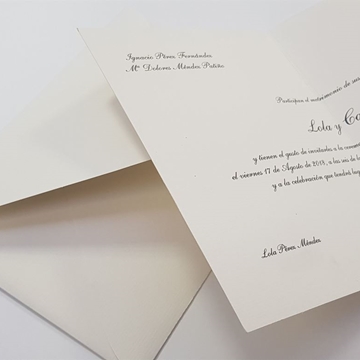 Ignacio Pérez Fernández
Mª Dolores Méndez Patiño
Participan el matrimonio de sus
Lola y Ca
y tienen el gusto de invitarles a la ceremonia
el viernes 17 de Agosto de 2018, a las seis de la
y a la celebración que tendrá lug
Lola Pérez Méndez